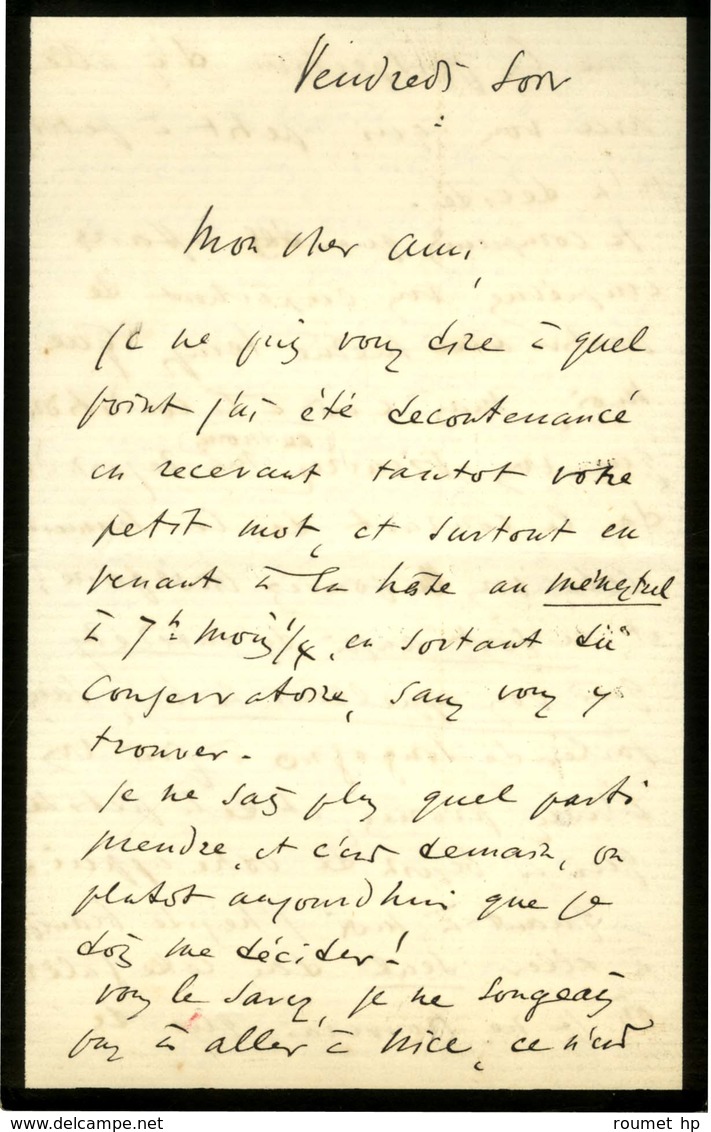 Vendredi soir
Mon cher ami,
Je ne puis vous dire à quel
point j'ai été decontenancé
en recevant tantot votre
petit mot, et surtout en
venant à la hâte au ménestrel
à 7h moins 1/4, en sortant du
Conservatoire, sans vous y
trouver.
Je ne sais plus quel parti
prendre, et c'est demain, ou
plutot aujourd'hui que je
dois me décider!
Vous le savez, je ne songeais
pas à aller à Nice, ce n'est
roumet hp